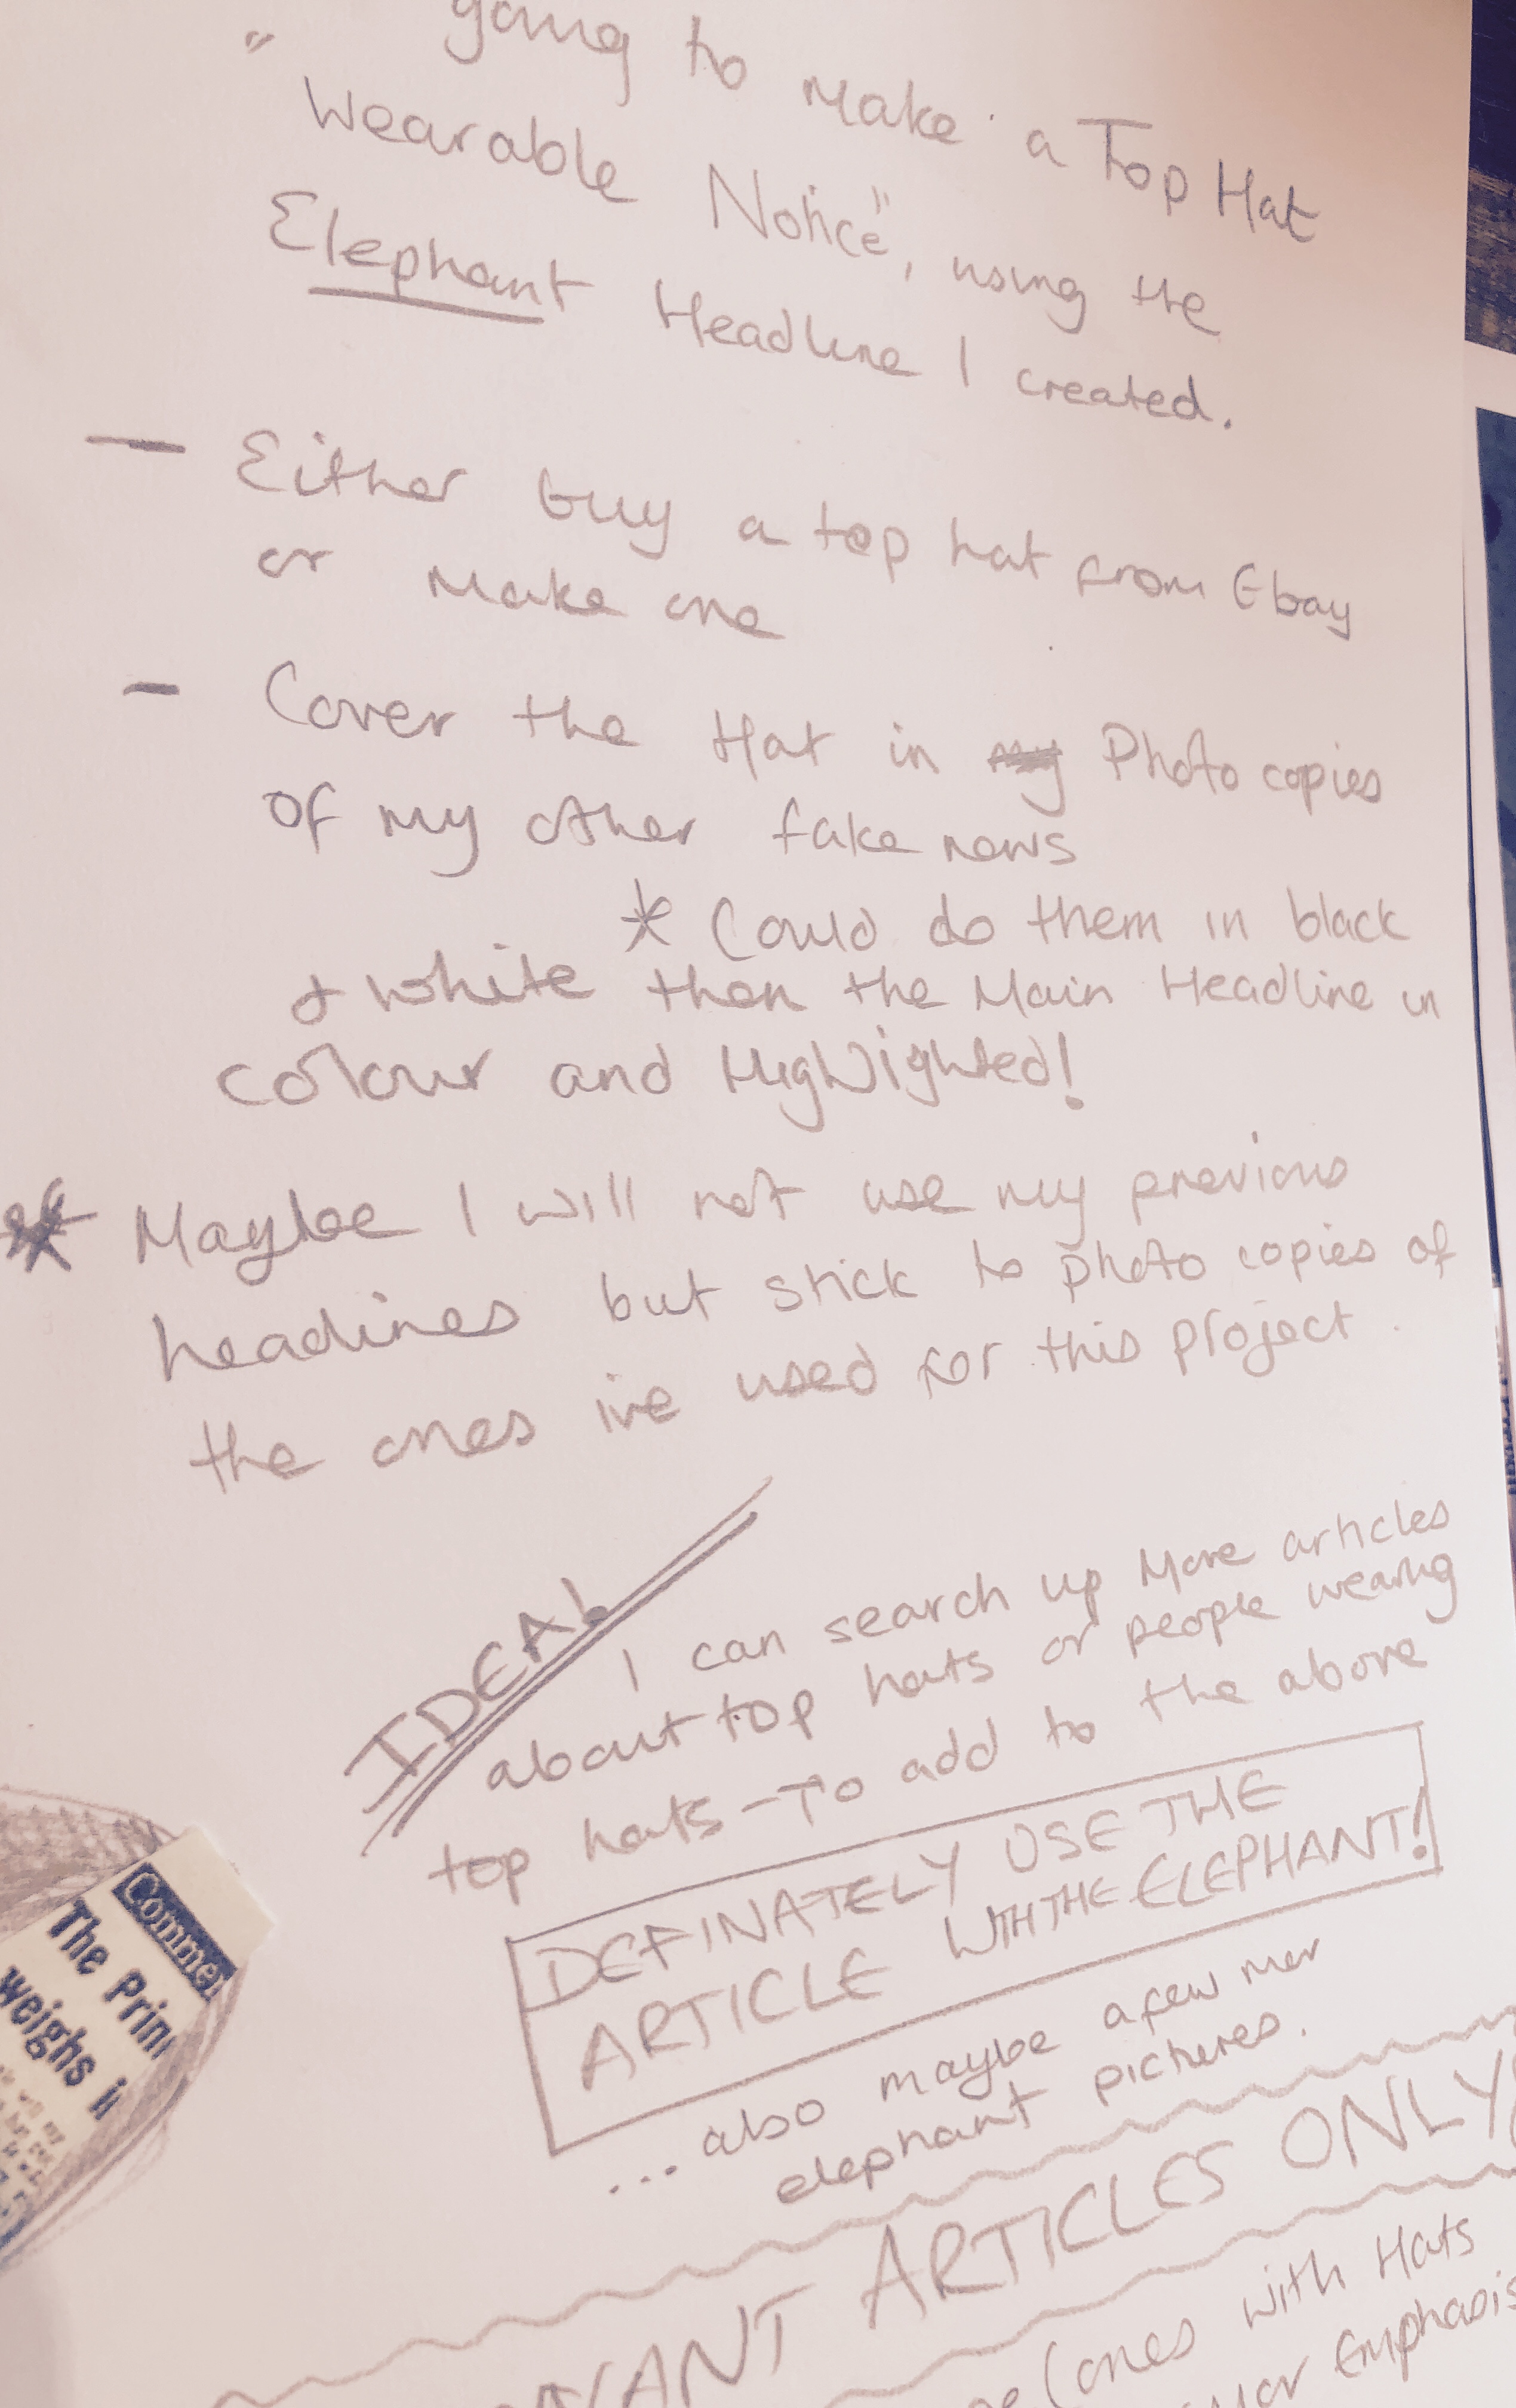 going to make a Top Hat
"Wearable Notice", using the
Elephant Headline I created.
— Either buy a top hat from Ebay
or make one
- Cover the Hat in my Photo copies
of my other fake news
* Could do them in black
& white then the Main Headline in
colour and Highlighted!
* Maybe I will not use my previous
headlines but stick to photo copies of
the ones ive used for this project.
IDEA!
I can search up More articles
about top hats or people wearing
top hats - To add to the above
DEFINATELY USE THE
ARTICLE WITH THE ELEPHANT!
...also maybe a few mor
elephant pictures.
ARTICLES ONLY
(ones with Hats
Emphasis
Commen
The Prin
weighs i